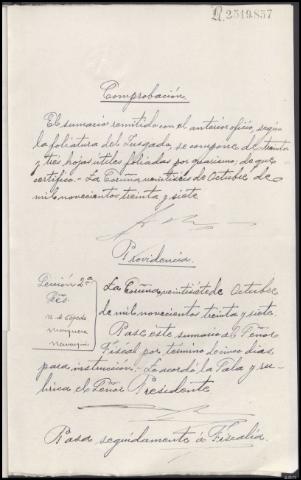 N.2519.857
Comprobación.
El sumario remitido con el anterior oficio, según
la foliatura del Juzgado, se compone de treinta
y tres hojas útiles foliadas por guarismo; de que
certifico.- La Coruña veintiseis de Octubre de
mil novecientos treinta y siete
Providencia.
Sección 2ª
Sres.
La Coruña veintisiete de Octubre
de mil novecientos treinta y siete.
Pase este sumario al Señor
Fiscal por término de cinco días
para instrucción.- Lo acordó la Sala y ru-
brica el Señor Presidente
Pasa seguidamente á Fiscalía.